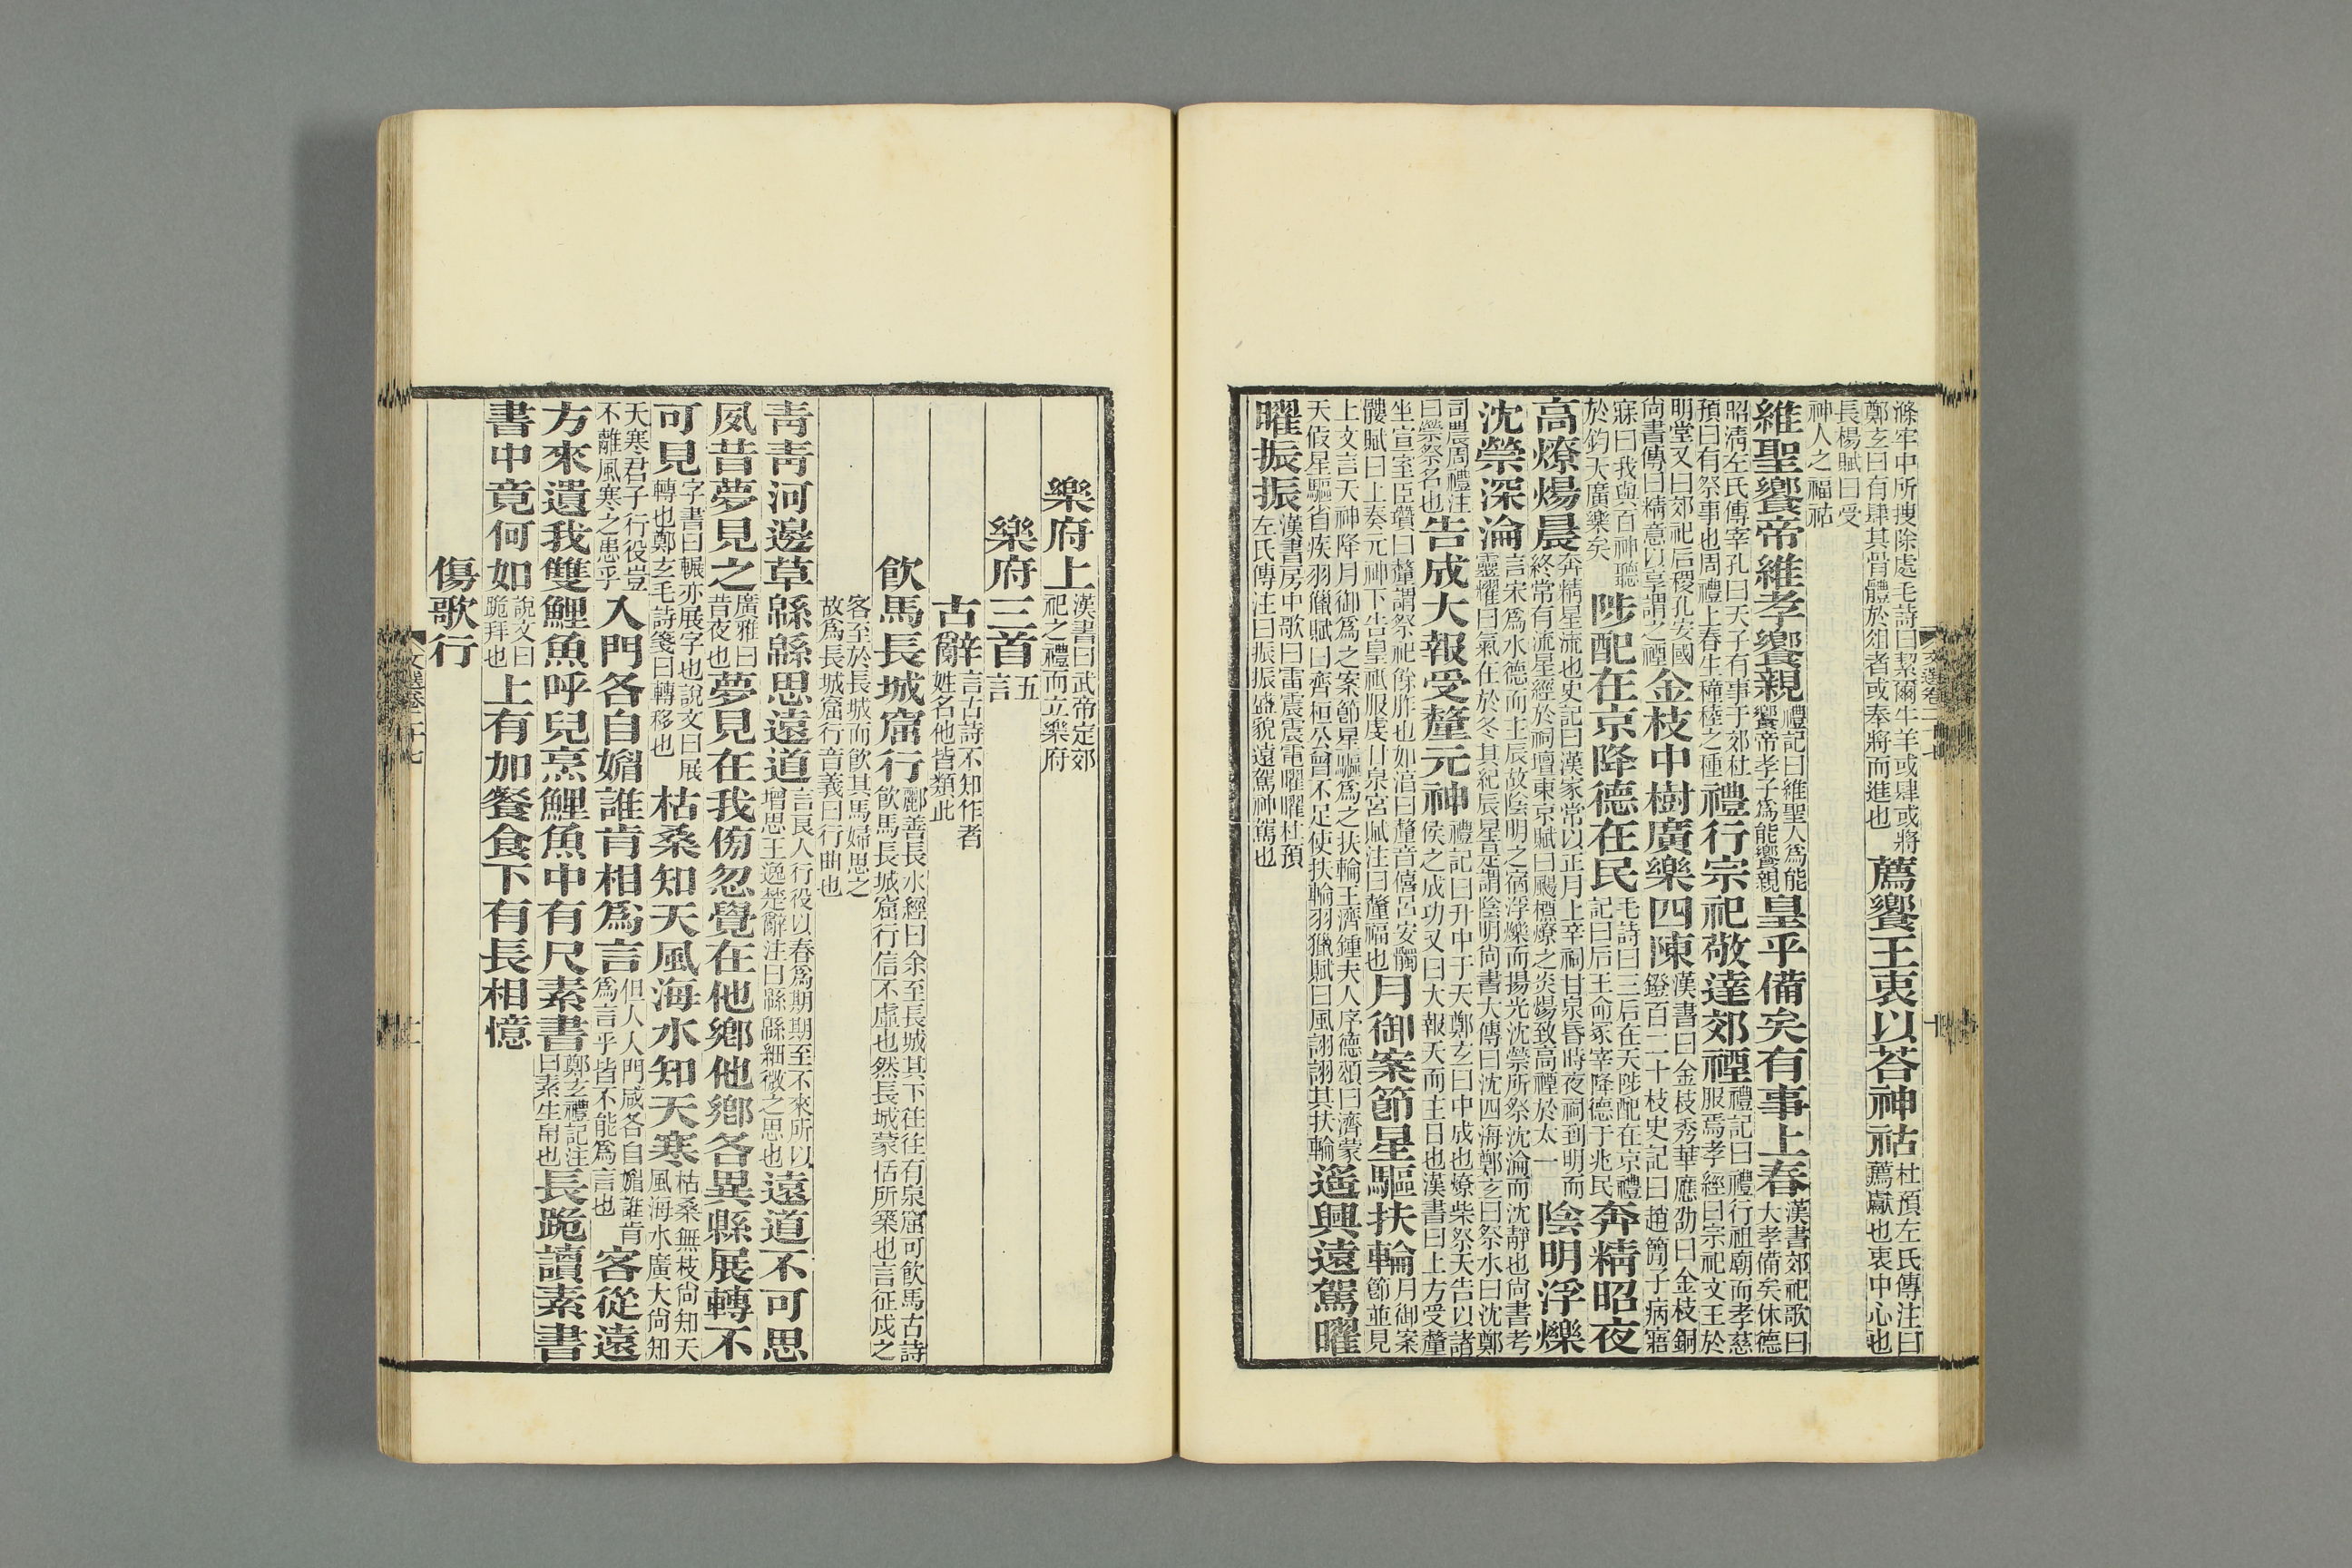 滌牢中所搜除處毛詩曰絜爾牛羊或肆或將
鄭玄曰有肆其骨體於俎者或奉將而進也
薦饗王衷以荅神祜
杜預左氏傳注曰
薦獻也衷中心也
長楊賦曰受
神人之福祜
維聖饗帝維孝饗親
禮記曰維聖人爲能
饗帝孝子爲能饗親
皇乎備矣有事上春
漢書郊祀歌曰
大孝備矣休德
昭淸左氏傳宰孔曰天子有事于郊杜
預曰有祭事也周禮上春生穜稑之種
禮行宗祀敬達郊禋
禮記曰禮行祖廟而孝慈
服焉孝經曰宗祀文王於
明堂又曰郊祀后稷孔安國
尙書傳曰精意以享謂之禋
金枝中樹廣樂四陳
漢書曰金枝秀華應劭曰金枝銅
鐙百二十枝史記曰趙簡子病寤
寐曰我與百神聽
於鈞天廣樂矣
陟配在京降德在民
毛詩曰三后在天陟配在京禮
記曰后王命冢宰降德于兆民
奔精昭夜
高燎煬晨
奔精星流也史記曰漢家常以正月上辛祠甘泉昏時夜祠到明而
終常有流星經於祠壇東京賦曰颺槱燎之炎煬致高禋於太一
陰明浮爍
沈禜深淪
言宋爲水德而主辰故陰明之宿浮爍而揚光沈禜所祭沈淪而沈靜也尙書考
靈耀曰氣在於冬其紀辰星是謂陰明尙書大傳曰沈四海鄭玄曰祭水曰沈鄭
司農周禮注
曰禜祭名也
告成大報受釐元神
禮記曰升中于天鄭玄曰中成也燎柴祭天告以諸
侯之成功又曰大報天而主日也漢書曰上方受釐
坐宣室臣瓚曰釐謂祭祀餘胙也如淯曰釐音僖呂安髑
髏賦曰上奏元神下告皇祗服虔甘泉宮賦注曰釐福也
月御案節星驅扶輪
月御案
節並見
上文言天神降月御爲之案節星驅爲之扶輪王濟鍾夫人序德頌曰濟蒙
天假星驅省疾羽獵賦曰齊桓公曾不足使扶輪羽獵賦曰風詡詡其扶輪
遙興遠駕曜
曜振振
漢書房中歌曰雷震震電曜曜杜預
左氏傳注曰振振盛貌遠駕神駕也
樂府上
漢書曰武帝定郊
祀之禮而立樂府
樂府三首五
言
古辭
言古詩不知作者
姓名他皆類此
飮馬長城窟行
酈善長水經曰余至長城其下往往有泉窟可飮馬古詩
飮馬長城窟行信不虛也然長城蒙恬所築也言征戍之
客至於長城而飮其馬婦思之
故爲長城窟行音義曰行曲也
靑靑河邊草緜緜思遠道
言良人行役以春爲期期至不來所以
增思王逸楚辭注曰緜緜細微之思也
遠道不可思
夙昔夢見之
廣雅曰
昔夜也
夢見在我傍忽覺在他鄕他鄕各異縣展轉不
可見
字書曰輾亦展字也說文曰展
轉也鄭玄毛詩箋曰轉移也
枯桑知天風海水知天寒
枯桑無枝尙知天
風海水廣大尙知
天寒君子行役豈
不離風寒之患乎
入門各自媚誰肯相爲言
但人人門咸各自媚誰肯
爲言乎皆不能爲言也
客從遠
方來遺我雙鯉魚呼兒烹鯉魚中有尺素書
鄭玄禮記注
曰素生帛也
長跪讀素書
書中竟何如
說文曰
跪拜也
上有加餐食下有長相憶
傷歌行